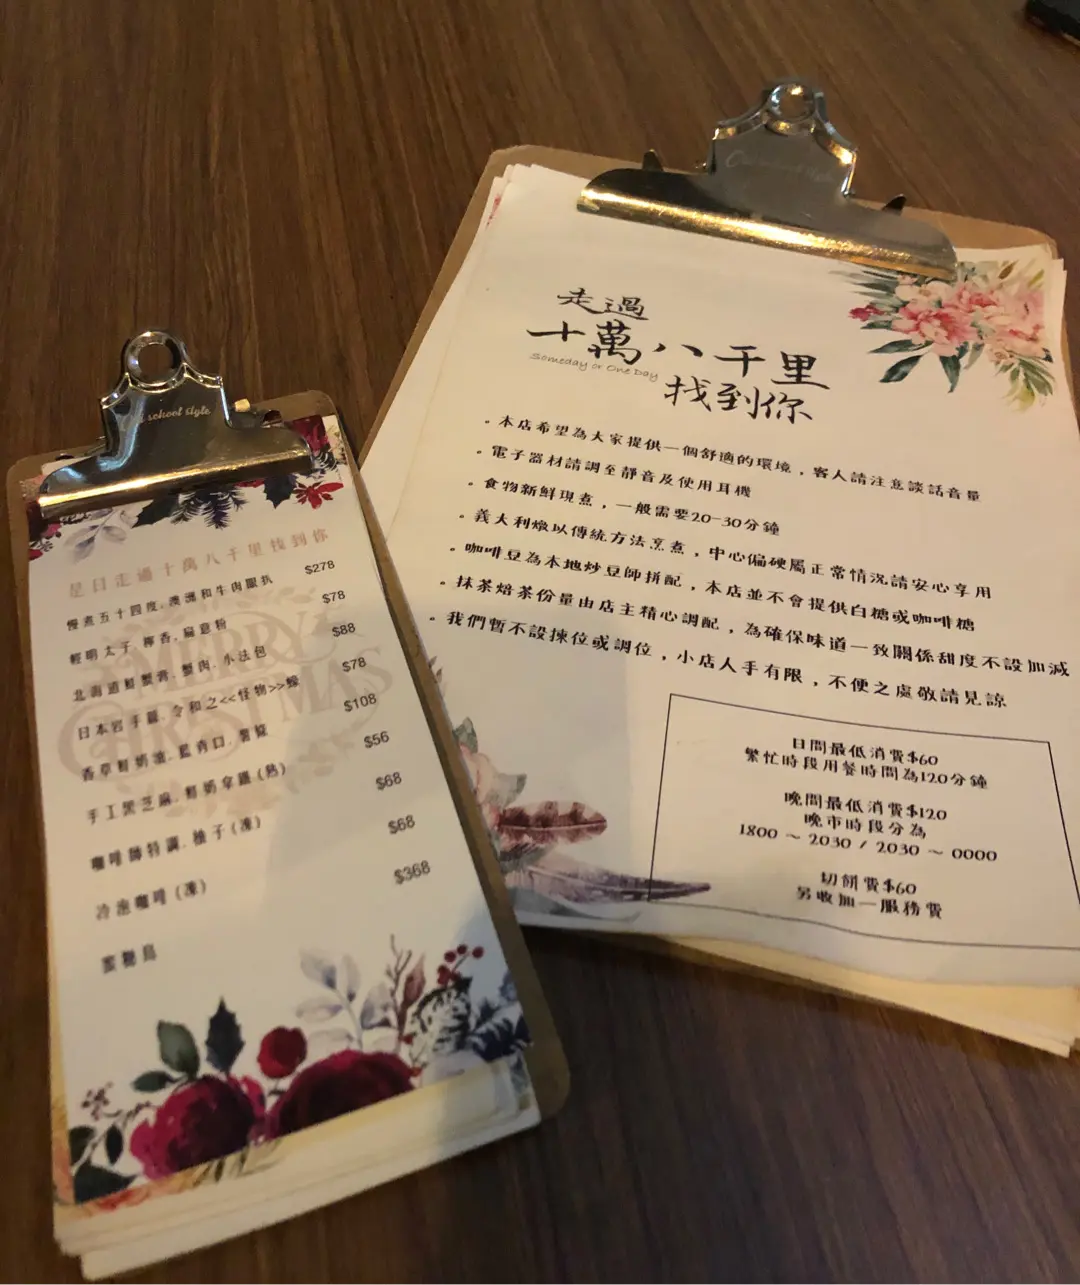 school style
星日走過十萬八千里找到你
慢煮五十四度.澳洲和牛肉眼扒 $278
輕明太子.椰香.扁意粉 $78
北海道鮮蟹膏.蟹肉.小法包 $88
日本岩手縣.令和之<<怪物>>蠔 $78
香草鮮奶油.藍青口.薯條 $108
手工黑芝麻.鮮奶拿鐵(熱) $56
咖啡師特調.柚子(凍) $68
冷泡咖啡(凍) $68
$368
MERRY
CHRISTMAS
走過
十萬八千里
Someday or One Day
找到你
。本店希望為大家提供一個舒適的環境，客人請注意談話音量
。電子器材請調至靜音及使用耳機
。食物新鮮現煮，一般需要20-30分鐘
。義大利燉以傳統方法烹煮，中心偏硬屬正常情況請安心享用
。咖啡豆為本地炒豆師拼配，本店並不會提供白糖或咖啡糖
。抹茶焙茶份量由店主精心調配，為確保味道一致關係甜度不設加減
。我們暫不設揀位或調位，小店人手有限，不便之處敬請見諒
日間最低消費$60
繁忙時段用餐時間為120分鐘
晚間最低消費$120
晚市時段分為
1800 ~ 2030 / 2030 ~ 0000
切餅費$60
另收加一服務費